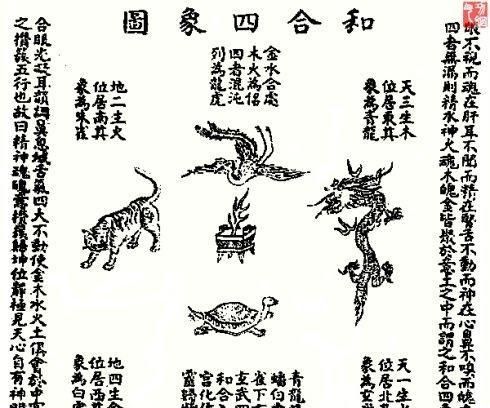 和合四象圖
眼不視而魂在肝耳不聞而精在腎舌不動而神在心鼻不嗅而
四者無漏則精水神火魂木魄金皆聚於意土之中而謂之和合四
天三生木
位居東其
象為青龍
金水合處
木火為侶
四者混沌
列為龍虎
地二生火
位居南其
象為朱雀
天一生
位居北
象為玄
青龍
蟠白
雀下
玄武四
和合
宮化作
地四生金
位居西其
象為白
合眼光凝耳韻調鼻息緘舌氣四大不動使金木水火土俱會於中
之攢簇五行也故曰精神魂魄意攢簇歸坤位靜極見天心自有神